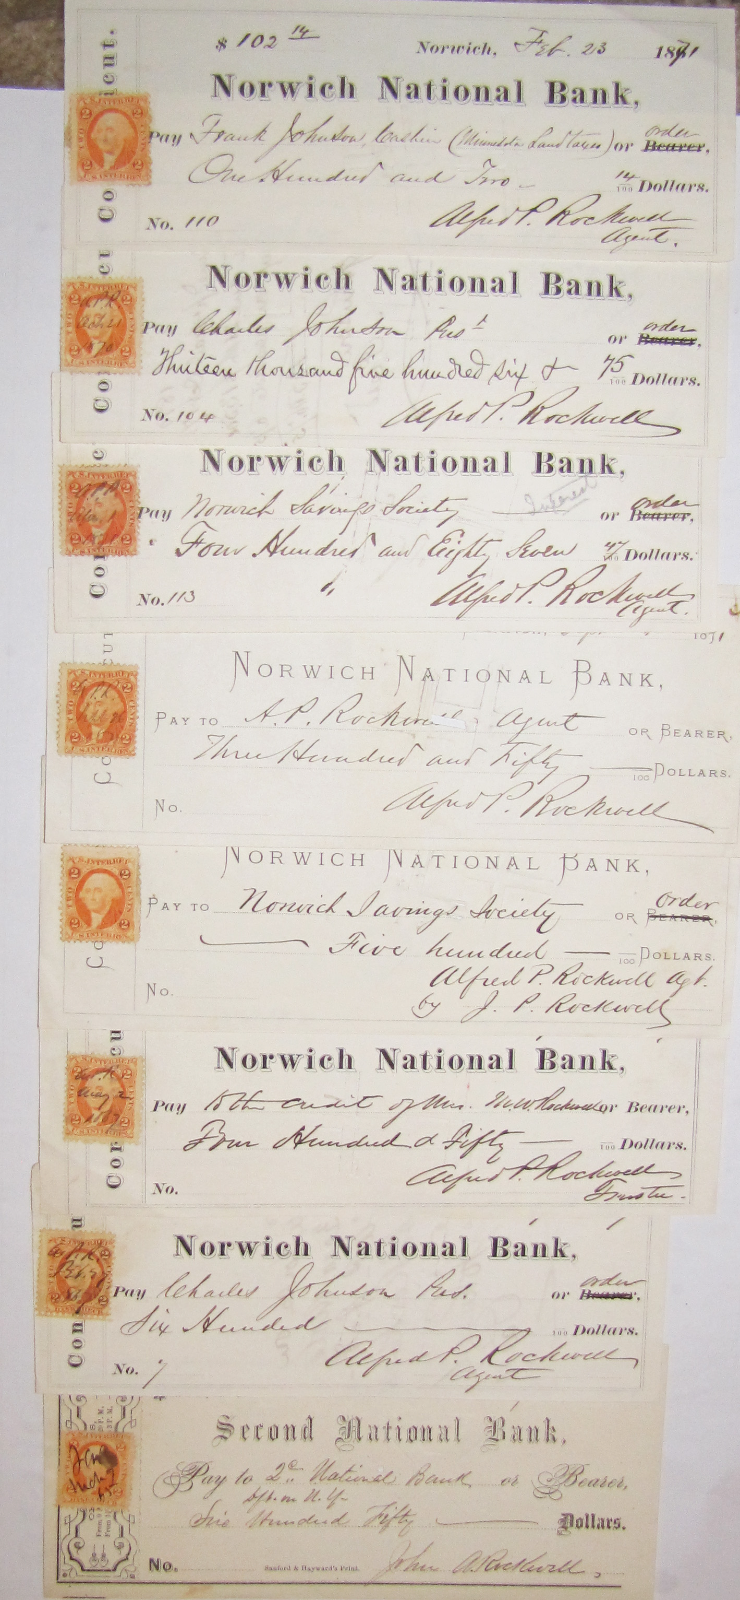 $ 102 14 Norwich, Feb. 23 1871
Norwich National Bank,
Pay Frank Johnson, Cashier (Minnesota Land taxes) or order Bearer,
One Hundred and Two 14/100 Dollars.
No. 110 Alfred P. Rockwell
Agent.
Norwich National Bank,
Pay Charles Johnson Prest or order Bearer,
Thirteen thousand five hundred six & 75/100 Dollars.
No. 104 Alfred P. Rockwell
Norwich National Bank,
Interest
Pay Norwich Savings Society or order Bearer,
Four Hundred and Eighty Seven 47/100 Dollars.
No. 113 Alfred P. Rockwell
Agent.
1871
NORWICH NATIONAL BANK,
PAY TO A. P. Rockwell, Agent OR BEARER,
Three Hundred and Fifty /100 DOLLARS.
No. Alfred P. Rockwell
NORWICH NATIONAL BANK,
PAY TO Norwich Savings Society OR order BEARER,
Five hundred /100 DOLLARS.
Alfred P. Rockwell Agt.
No. by J. P. Rockwell
Norwich National Bank,
Pay to the credit of Mrs. M. W. Rockwell or Bearer,
Four Hundred & Fifty /100 Dollars.
Alfred P. Rockwell
No. Trustee.
Norwich National Bank,
Pay Charles Johnson Pres. or order Bearer,
Six Hundred /100 Dollars.
No. 7 Alfred P. Rockwell
Agent
Second National Bank,
Pay to 2d National Bank or Bearer,
Dft. on N. Y.
Hundred Fifty Dollars.
No. Sanford & Hayward's Print. John A. Rockwell,